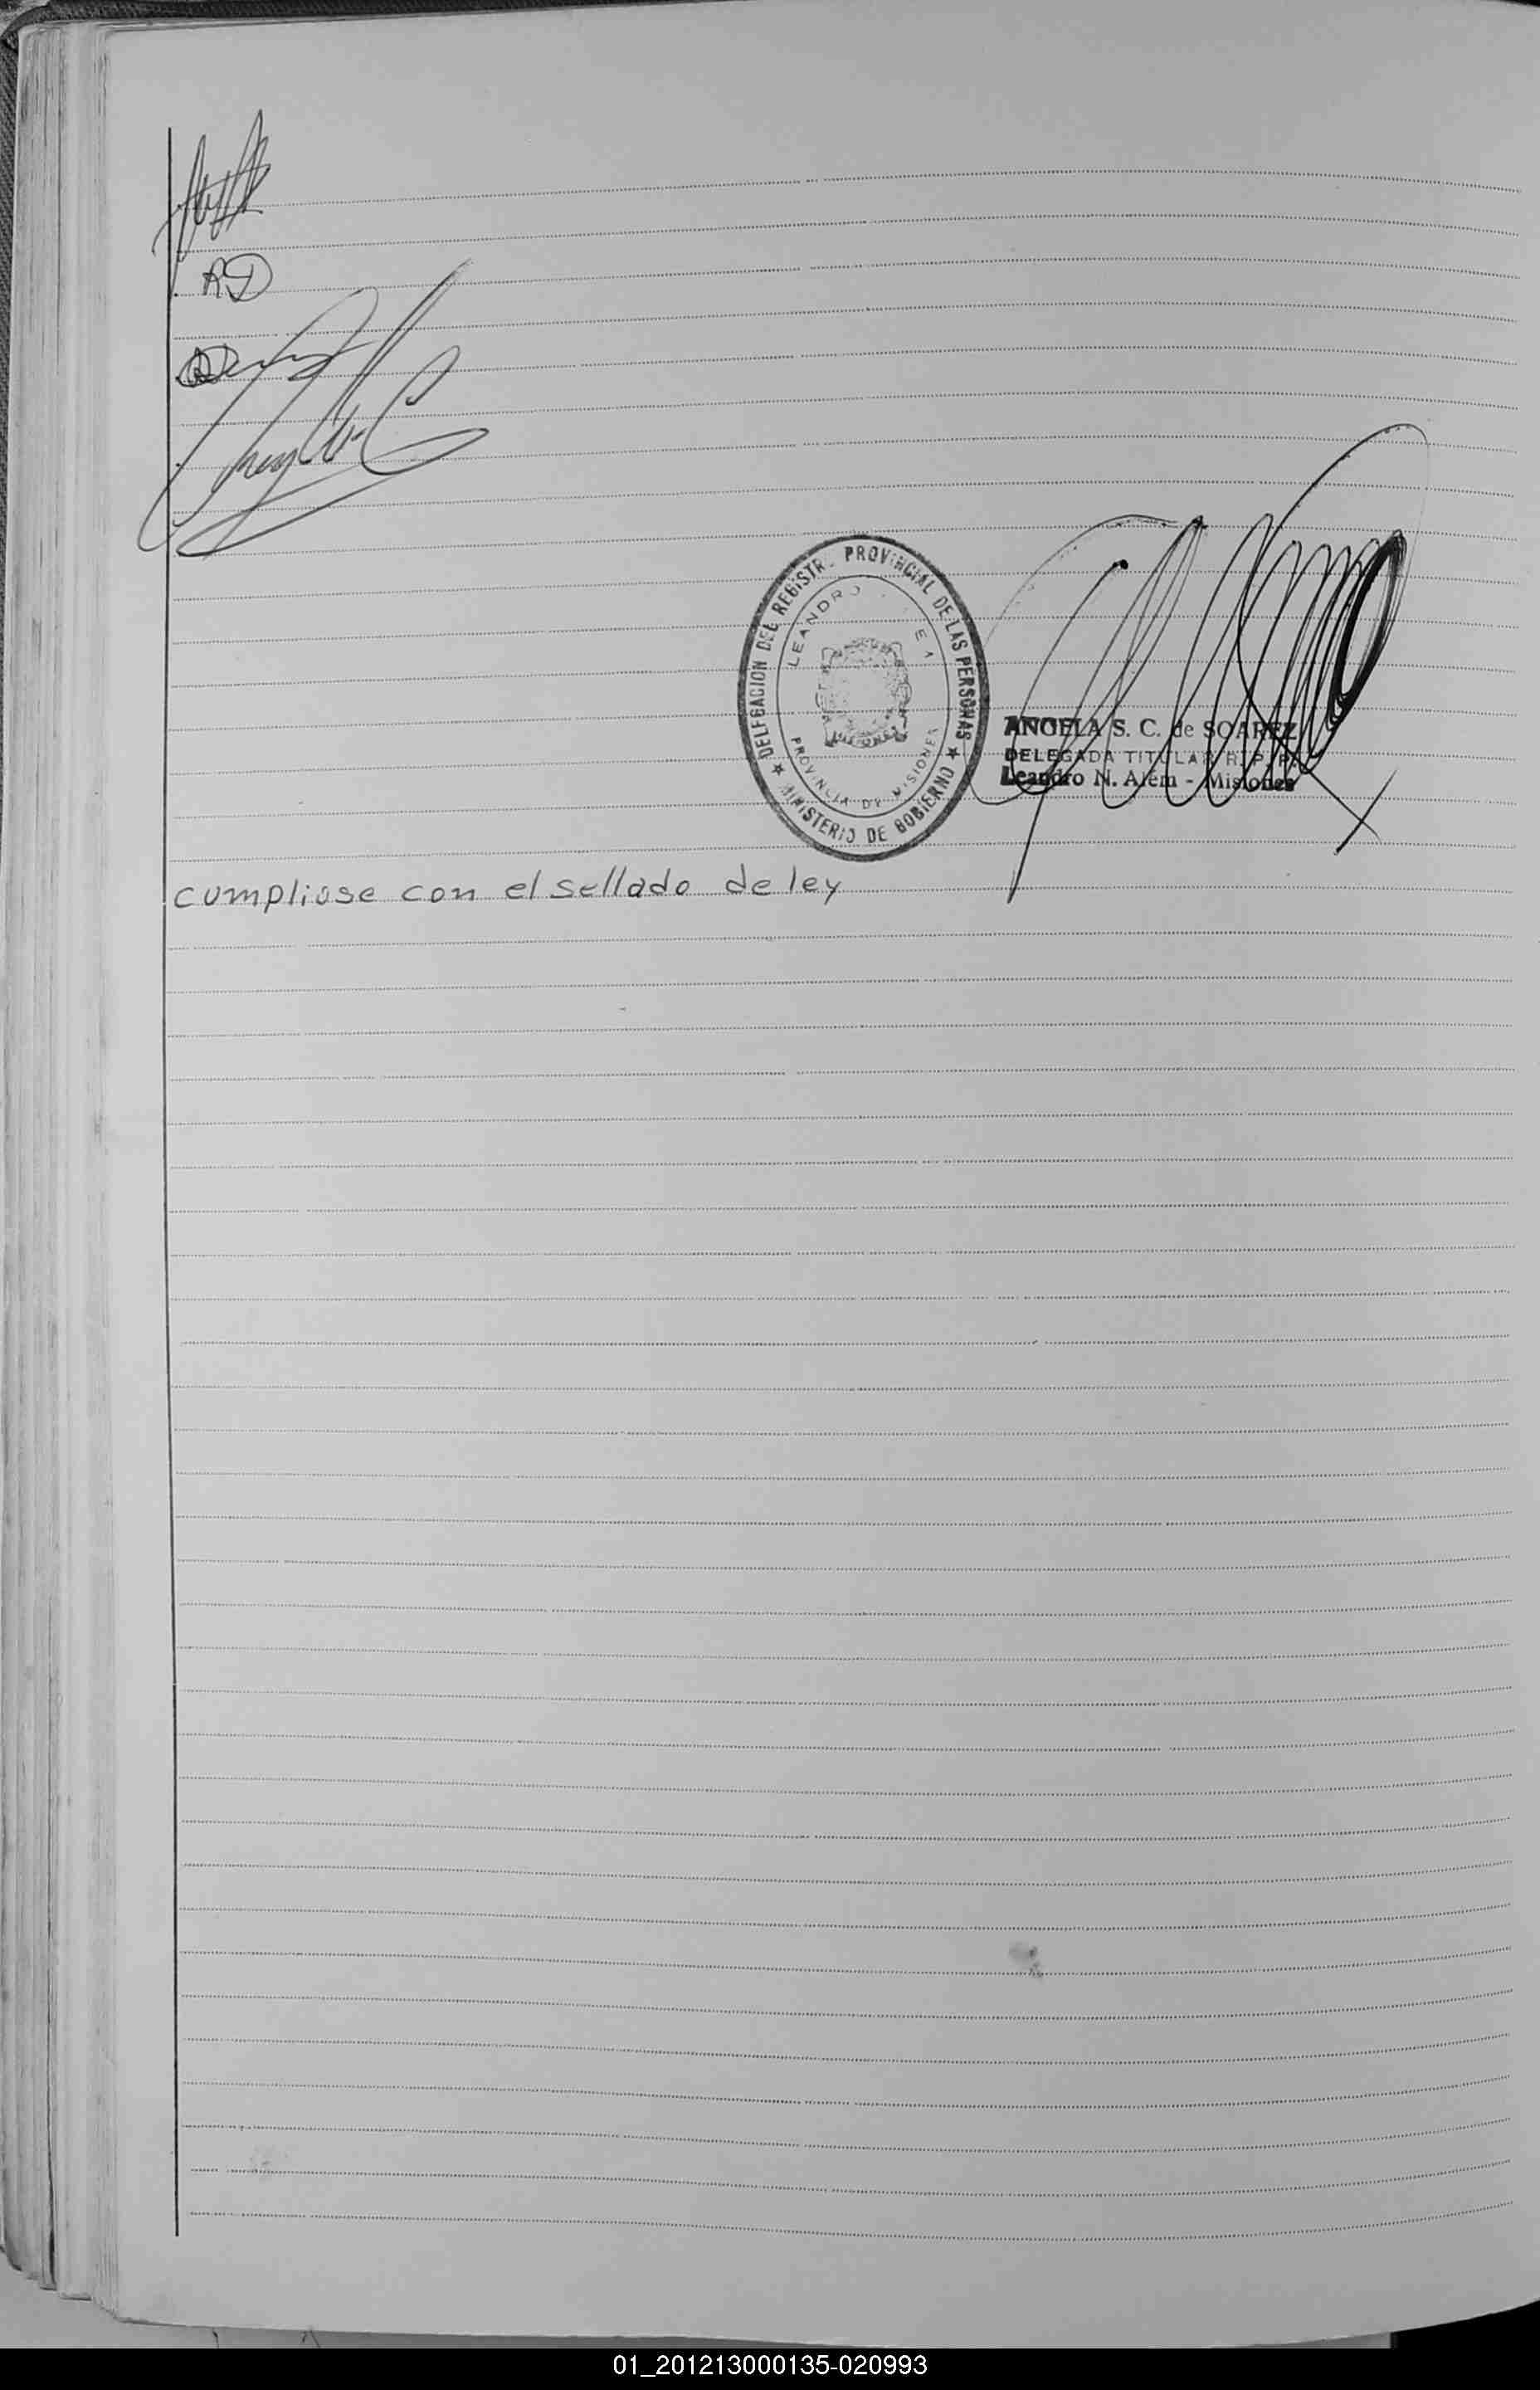 RD
DELEGACION DEL REGISTR PROVINCIAL DE LAS PERSONAS
LEANDRO
PROVINCIA DE MISIONES
★ MINISTERIO DE GOBIERNO ★
ANGELA S. C. de SOAREZ
DELEGADA TITULAR R. P. P.
Leandro N. Alem - Misiones
cumpliose con el sellado de ley
01_201213000135-020993